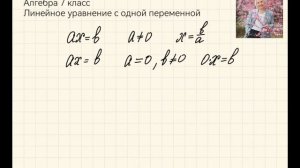 Алгебра 7 класс
Линейное уравнение с одной переменной
ax=b a≠0 x=b/a
ax=b a=0, b≠0 0·x=b